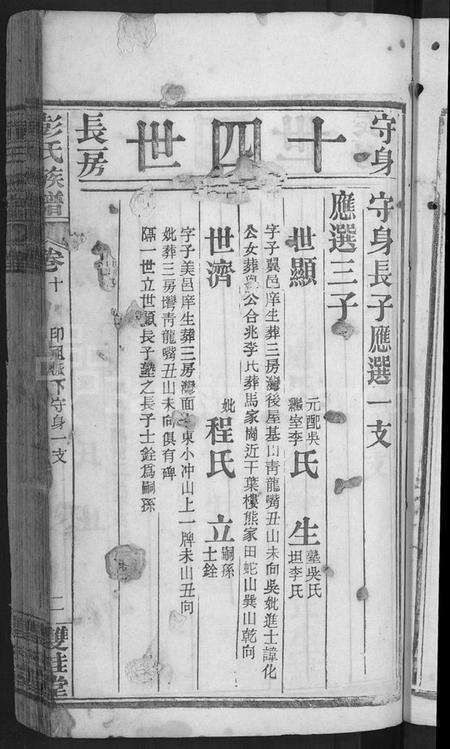 守身
十四世
長房
守身長子應選一支
應選三子
世顯
元配吳
繼室李
氏
生
塾吳氏
坦李氏
字子翼邑庠生葬三房灣後屋基山青龍嘴丑山未向吳妣進士諱化
公女葬公合兆李氏葬馬家崗近干葉樓熊家田蛇山巽山乾向
世濟
妣
程氏
立
嗣孫
士銓
字子美邑庠生葬三房灣面東小冲山上一牌未山丑向
妣葬三房灣青龍嘴丑山未向俱有碑
隔一世立世顯長子塾之長子士銓為嗣孫
彭氏族譜
卷十
下守身一支
二
雙桂堂